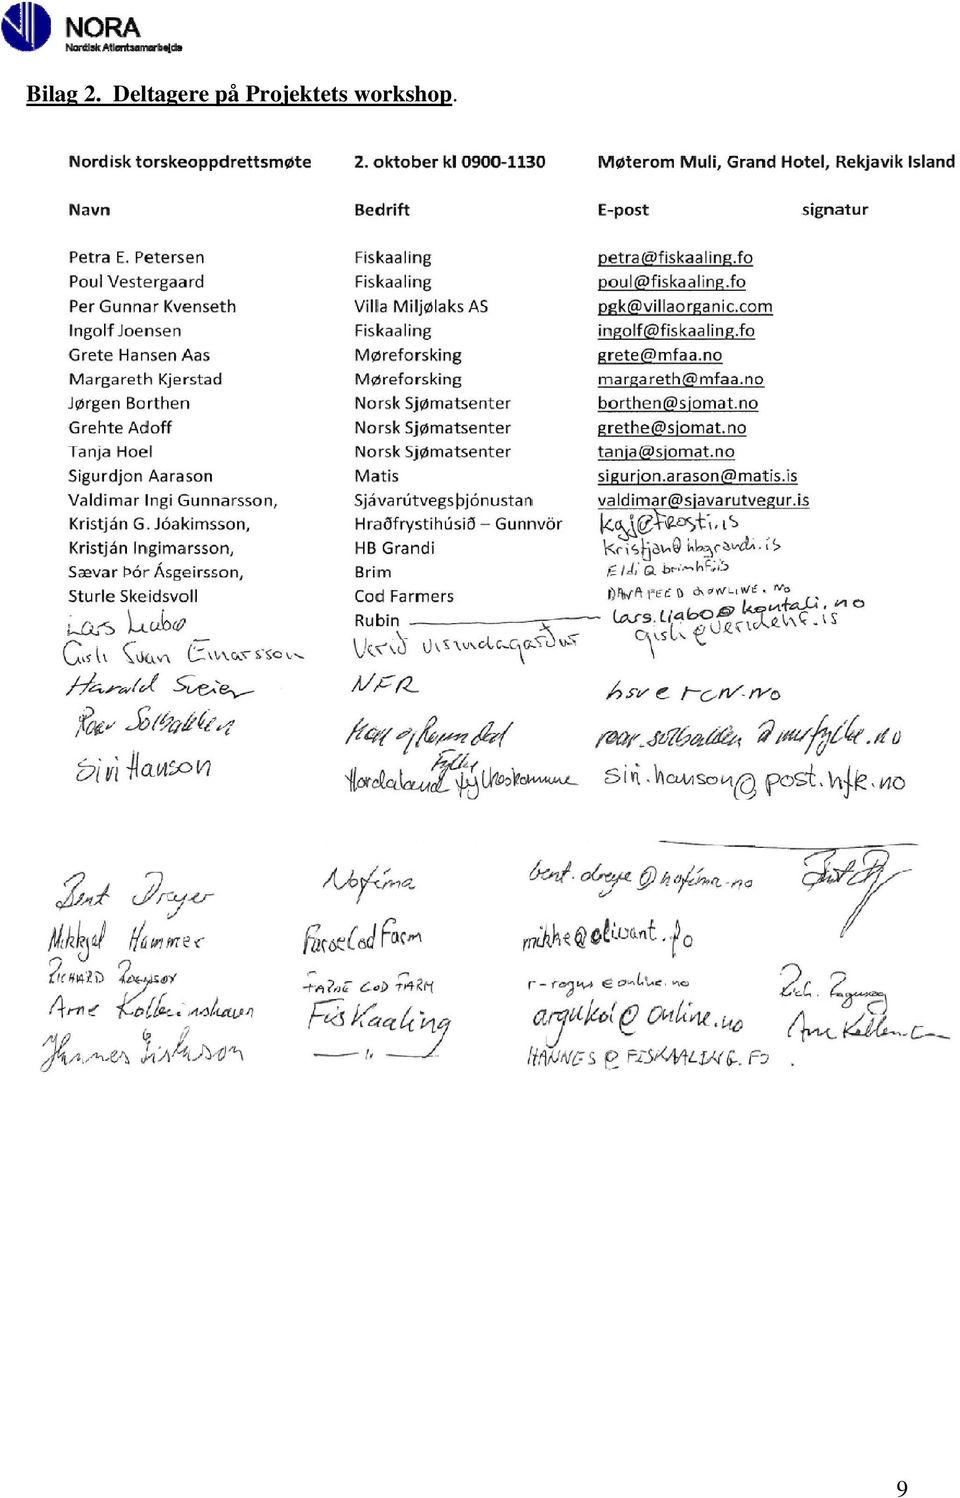 NORA
Nordisk Atlantsamarbejde
Bilag 2. Deltagere på Projektets workshop.
Nordisk torskeoppdrettsmøte 2. oktober kl 0900-1130 Møterom Muli, Grand Hotel, Rekjavik Island
Navn Bedrift E-post signatur
Petra E. Petersen Fiskaaling petra@fiskaaling.fo
Poul Vestergaard Fiskaaling poul@fiskaaling.fo
Per Gunnar Kvenseth Villa Miljølaks AS pgk@villaorganic.com
Ingolf Joensen Fiskaaling ingolf@fiskaaling.fo
Grete Hansen Aas Møreforsking grete@mfaa.no
Margareth Kjerstad Møreforsking margareth@mfaa.no
Jørgen Borthen Norsk Sjømatsenter borthen@sjomat.no
Grehte Adoff Norsk Sjømatsenter grethe@sjomat.no
Tanja Hoel Norsk Sjømatsenter tanja@sjomat.no
Sigurdjon Aarason Matis sigurjon.arason@matis.is
Valdimar Ingi Gunnarsson, Sjávarútvegsþjónustan valdimar@sjavarutvegur.is
Kristján G. Jóakimsson, Hraðfrystihúsið – Gunnvör kgj@frosti.is
Kristján Ingimarsson, HB Grandi kristjan@hbgrandi.is
Sævar Þór Ásgeirsson, Brim Eldi@brimhf.is
Sturle Skeidsvoll Cod Farmers
Lars Liabø Rubin lars.liabo@kontali.no
Gisli Svan Einarsson Verið visindagarður gisli@veridehf.is
Harald Sveier NFR hsv@rcn.no
Roar Solbakken Møre og Romsdal Fylke
Siri Hanson Hordaland fylkeskommune siri.hanson@post.hfk.no
Bent Dreyer Nofima bent.dreye@nofima.no
Mikkjal Hammer Faroe Cod Farm mikhe@olivant.fo
RICHARD FARØE COD FARM
Arne Fiskaaling @online.no
Hannes — " — HANNES@FISKAALING.FO
9